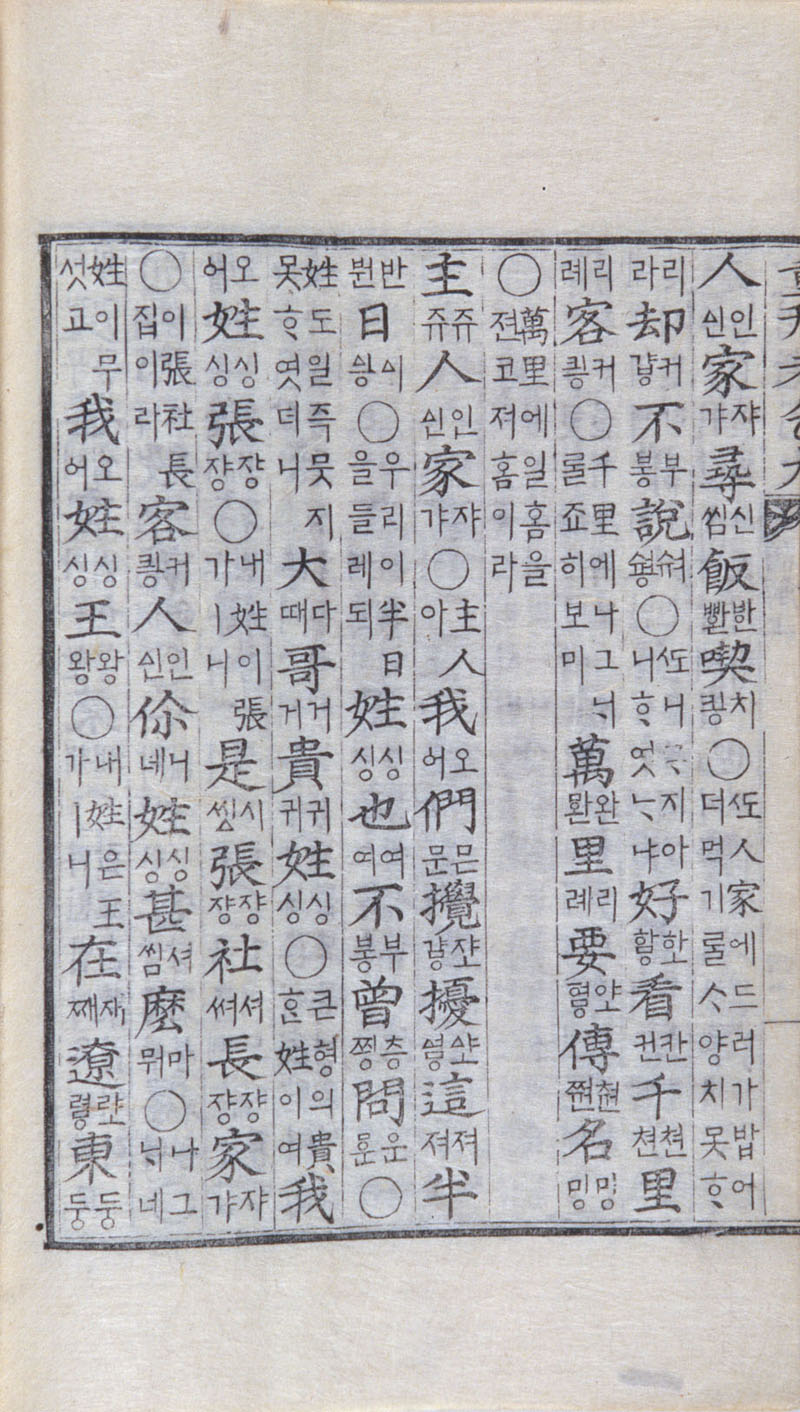 人인ᅀᅵᆫ家쟈갸尋신씸飯반뽠喫치킹○ᄯᅩ人家에드러가밥어더먹기ᄅᆞᆯᄉᆞ양치못ᄒᆞ
리라却커걍不부붕說ᄉᆑ○ᄯᅩ니ᄅᆞ지아니ᄒᆞ엿ᄂᆞ냐好看칸컨千쳔쳔里
리례客커킝○千里에나그ᄂᆡᄅᆞᆯ죠히보미萬완뫈里리례要傳名밍밍
○萬里에일홈을젼코져홈이라
主쥬쥬人인ᅀᅵᆫ家쟈갸○主人아我오어們믄문攪擾這져져半
반붠日ᅀᅵᅀᅵᆼ○우리이半日을들레되姓싱싱也여여不부붕曾층찡問○
姓도일즉뭇지못ᄒᆞ엿더니大다때哥거거貴귀귀姓싱싱○큰형의貴ᄒᆞᆫ姓이여我
오어姓싱싱張쟝쟝○내姓이張가ㅣ니是시張쟝쟝社셔쎠長쟝쟝家쟈갸
○이張社長집이라客커킹人인ᅀᅵᆫ你니네姓싱싱甚셔씸麽마뭐○나그ᄂᆡ네
姓이무섯고我오어姓싱싱王왕왕○내姓은王가ㅣ니在재째遼東둥둥